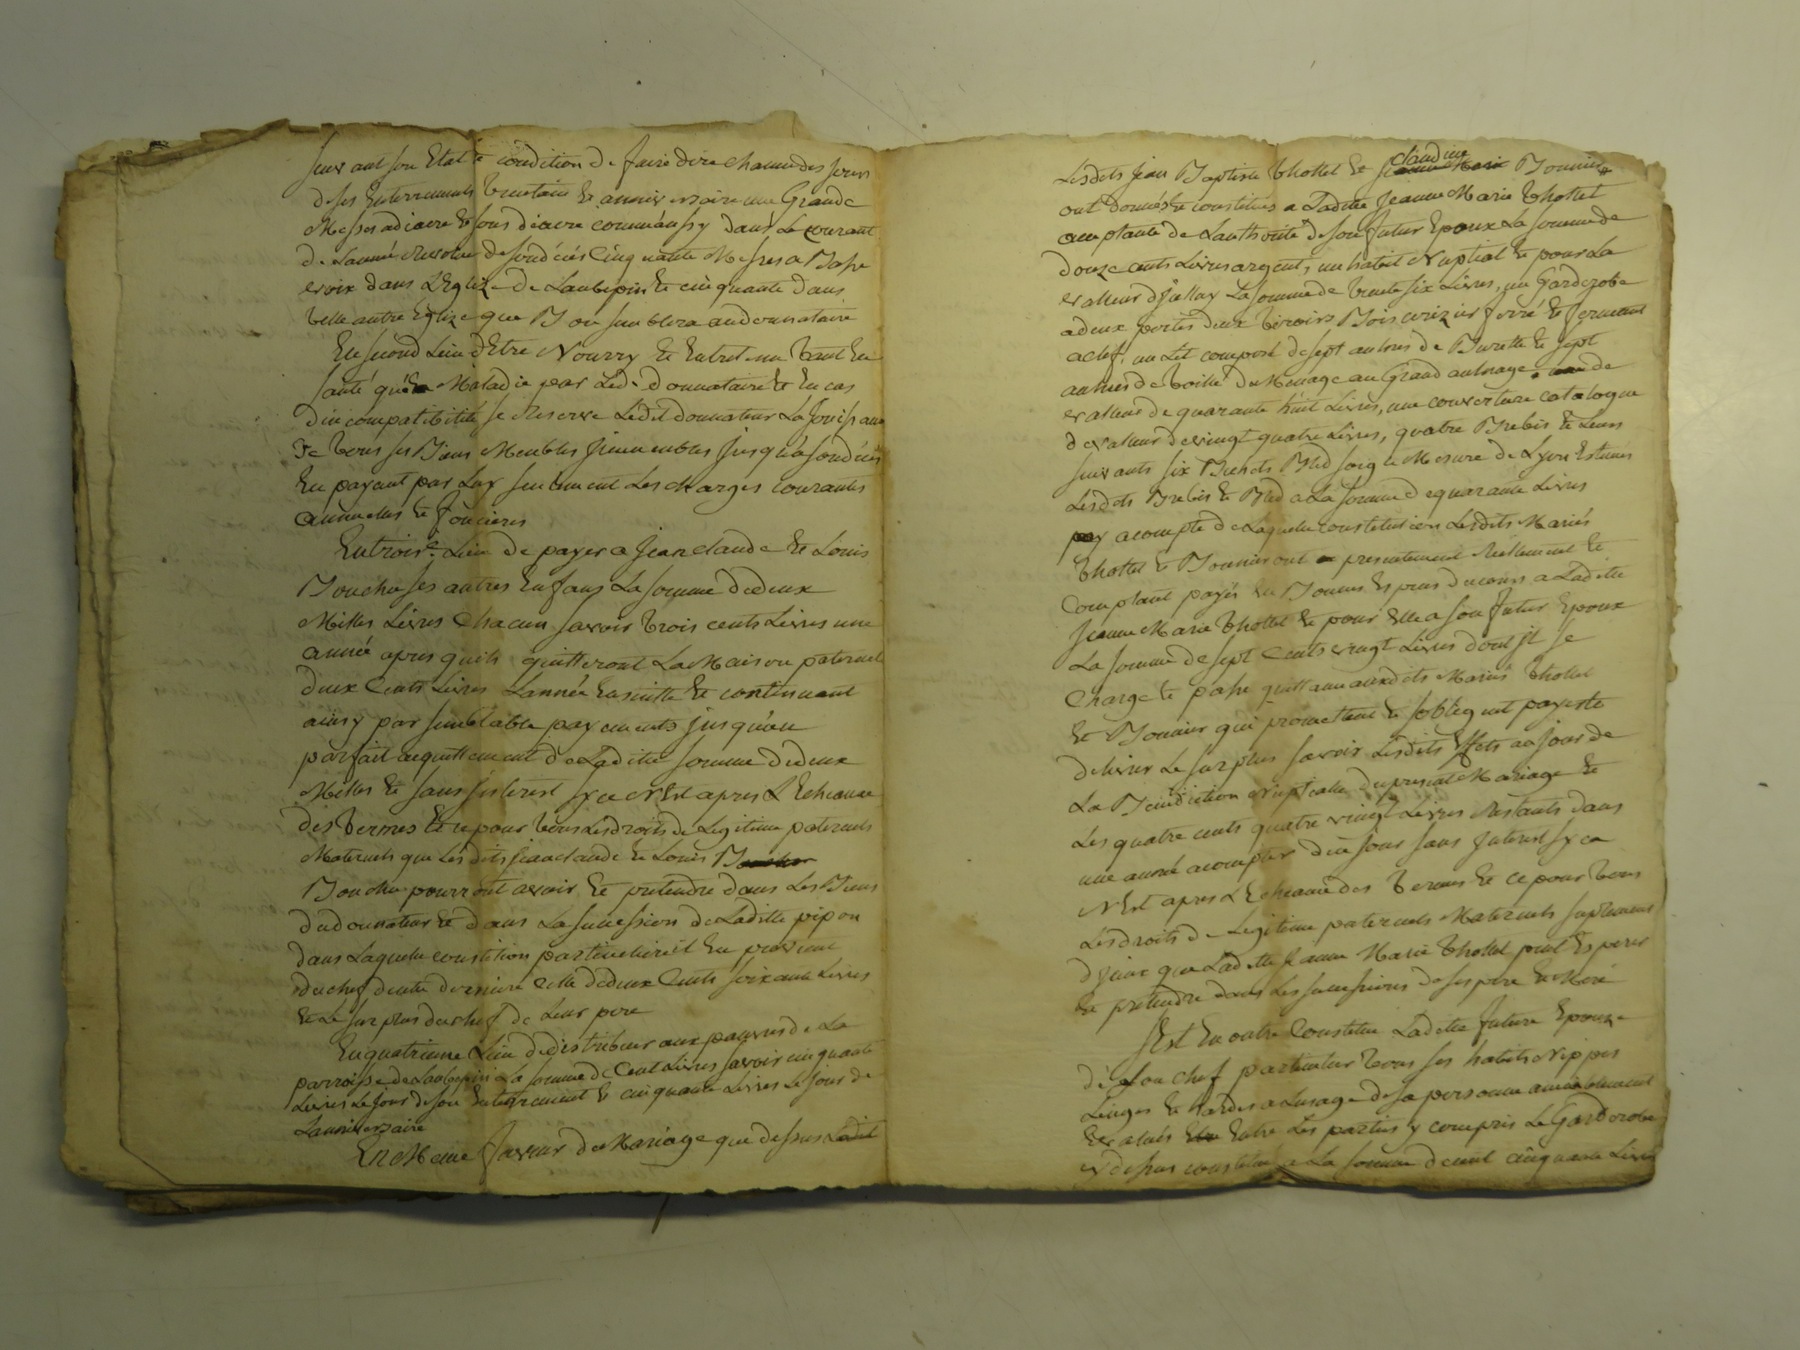 suivant son Etat a condition de faire dire chacun des jours
de ses Enterrements trentain et anniversaire une Grande
Messe a diacre et sous diacre comme aussy dans Le courant
de L'année Revolue de son décés Cinquante Messes a Basse
voix dans L'Eglize de L'aubepin et cinquante dans
telle autre Eglize que Bon semblera audonnataire
En second Lieu d'Etre Nourry et Entretenu tant En
santé qu'En Maladie par Led. donnataire et En cas
d'incompatibilité se Reserve Ledit donnateur La Jouissance
De tous ses Biens Meubles Jmmeubles jusqu'a son décés
En payant par Luy seulement Les charges courantes
annuelles et foncieres
En trois.e Lieu de payer a Jean claude et Louis
Bouchu ses autres Enfans La somme de deux
Milles Livres Chacun savoir trois cents Livres une
année apres qu'ils quitteront La Maison paternel
deux Cents Livres L'année Ensuitte et continuant
ainsy par semblable payements jusqu'au
parfait acquittement de Laditte somme de deux
Milles et sans jnterest sy ce N'Est apres L'Echeance
des termes Et ce pour tous Les droits de Legitime paternels
Maternels que Lesdits jean claude et Louis
Bouchu pourront avoir et pretendre dans Les Biens
du donnateur et dans La succession de Laditte pipon
dans Laquelle constition particulière il En provient
du chef de cette derniere celle de deux Cents soixante Livres
et Le surplus du chef de Leur pere
En quatrieme Lieu de distribuer aux pauvres de La
parroisse de Laubepin La somme de Cent Livres savoir cinquante
Livres Le jour de son Enterrement et cinquante Livres Le jour de
L'anniversaire
En Meme faveur de Mariage que dessus Ledit
Lesdits jean Baptiste thollet et claudine Bonnier
ont donnés et constitués a Laditte Jeanne Marie thollet
acceptante de L'authorité de son futur Epoux La somme de
douze cents Livres argent, un habit Nuptial et pour La
valleur d'jcelluy La somme de trente six Livres, un Garderobe
a deux portes deux tiroirs Bois cerizier ferré et fermant
a clef, un Lit composé de sept aulnes de Burette et sept
aulnes de toille du Menage au Grand aulnage de
valleur de quarante huit Livres, une couverture catalogne
de valleur de vingt quatre Livres, quatre Brebis et Leurs
suivants six Bichets Bled soigle Mesure de Lyon Estimés
Lesdits Brebis et Bled a La somme de quarante Livres
a compte de Laquelle constitution Lesdits Mariés
thollet et Bonnier ont presentement Reellement et
Comptant payés En Bonnes Especes du cours a Laditte
Jeanne Marie thollet et pour Elle a son futur Epoux
La somme de sept Cents vingt Livres dont jl se
Charge et passe quittance auxdits Mariés thollet
et Bonnier qui promettent et s'obligent payer et
delivrer Le surplus savoir Lesdits Effets au jour de
La Benediction Nuptialle du present Mariage et
Les quatre cents quatre vingt Livres Restants dans
une année a compter de ce jour sans jnterest sy ce
N'Est apres L'Echeance des termes et ce pour tous
Les droits de Legitime paternels Maternels suplement
d'jceux que Laditte Jeanne Marie thollet peut Esperer
et pretendre dans Les successions de ses pere et Mere
S'Est En outre Constitué Laditte future Epouze
de son chef particulier tous ses habits Nippes
Linges et hardes a L'usage de sa personne amiablement
Evalués Entre Les parties y compris Le Garderobe
cy dessus constitué a La somme de cent cinquante Livres